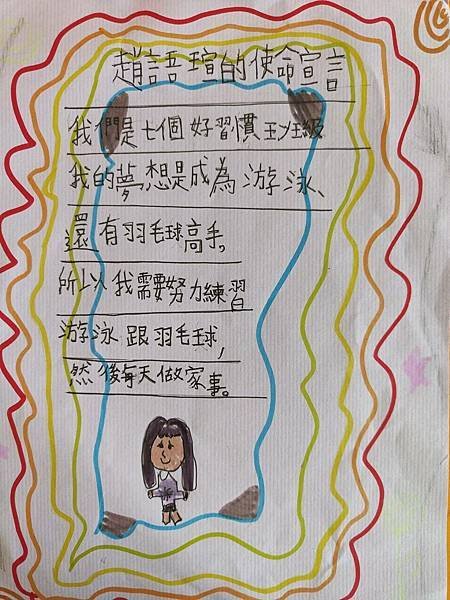 趙語瑄的使命宣言
我們是七個好習慣班級
我的夢想是成為游泳、
還有羽毛球高手。
所以我需要努力練習
游泳跟羽毛球,
然後每天做家事。